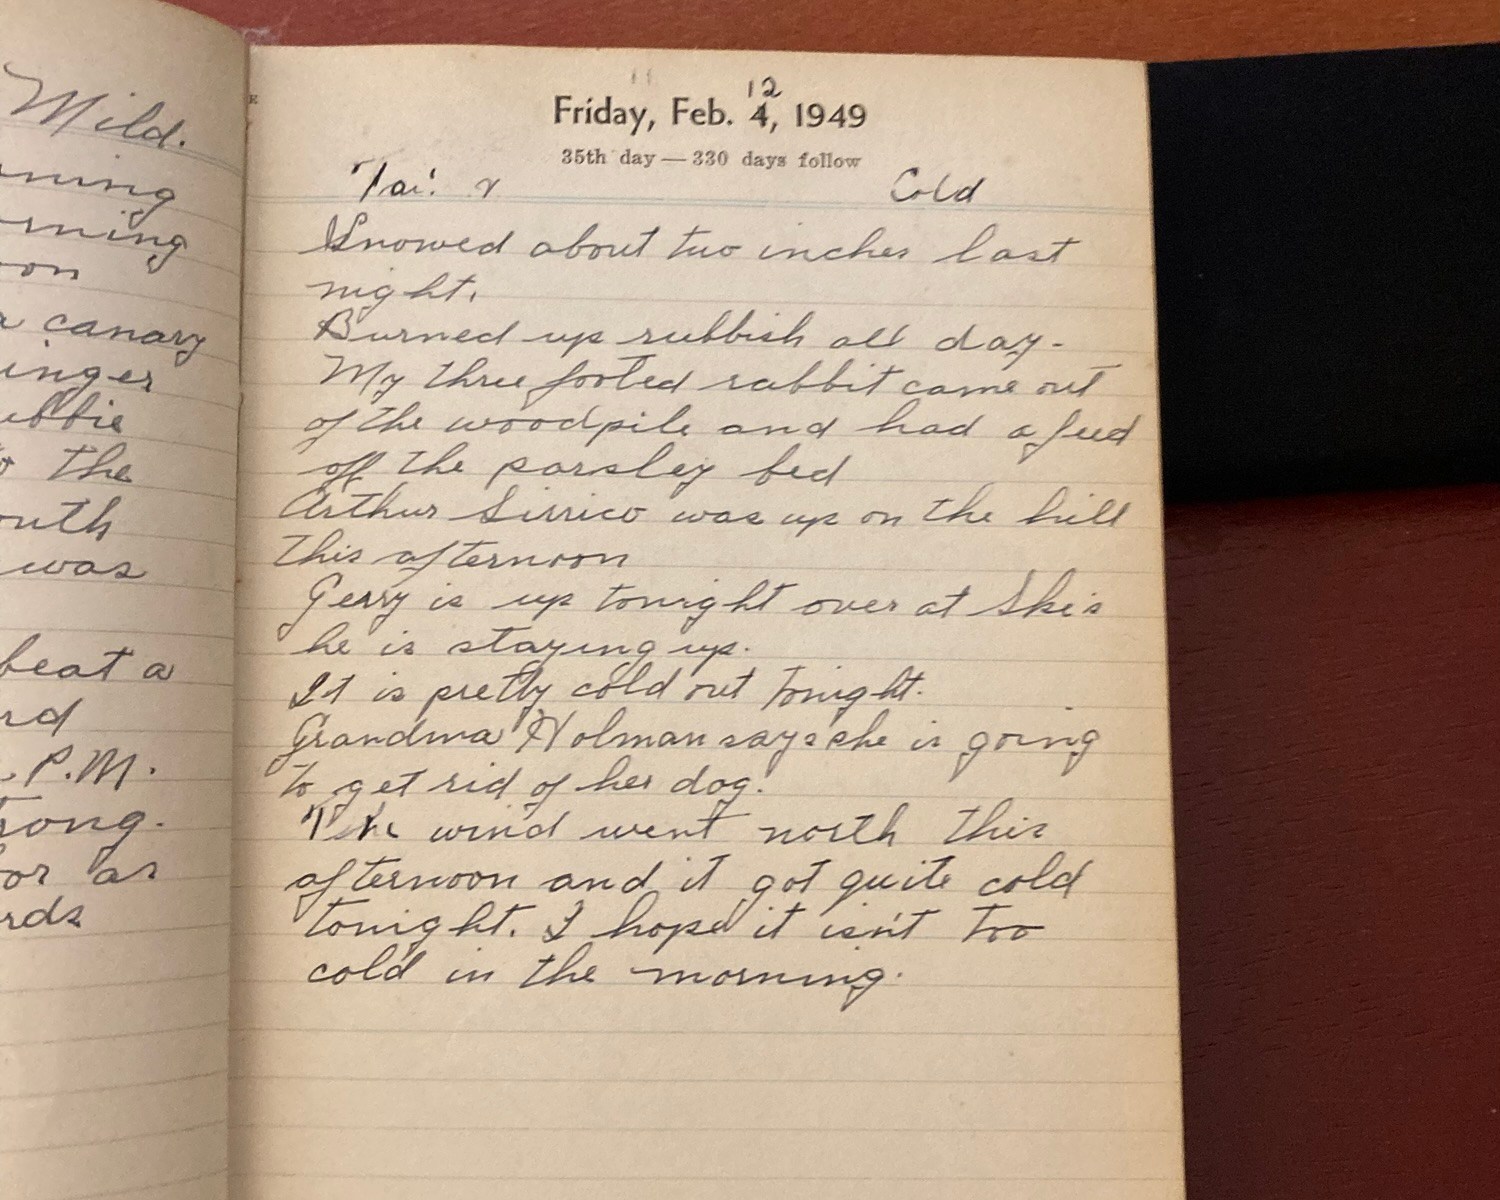 Mild.
canary
the
was
beat a
P.M.
or as
12
Friday, Feb. 4, 1949
35th day — 330 days follow
Fair Cold
Snowed about two inches last
night.
Burned up rubbish all day.
My three footed rabbit came out
of the woodpile and had a feed
off the parsley bed
Arthur Sirrico was up on the hill
this afternoon
Gerry is up tonight over at Ske's
he is staying up.
It is pretty cold out tonight.
Grandma Holman says she is going
to get rid of her dog.
The wind went north this
afternoon and it got quite cold
tonight. I hope it isn't too
cold in the morning.